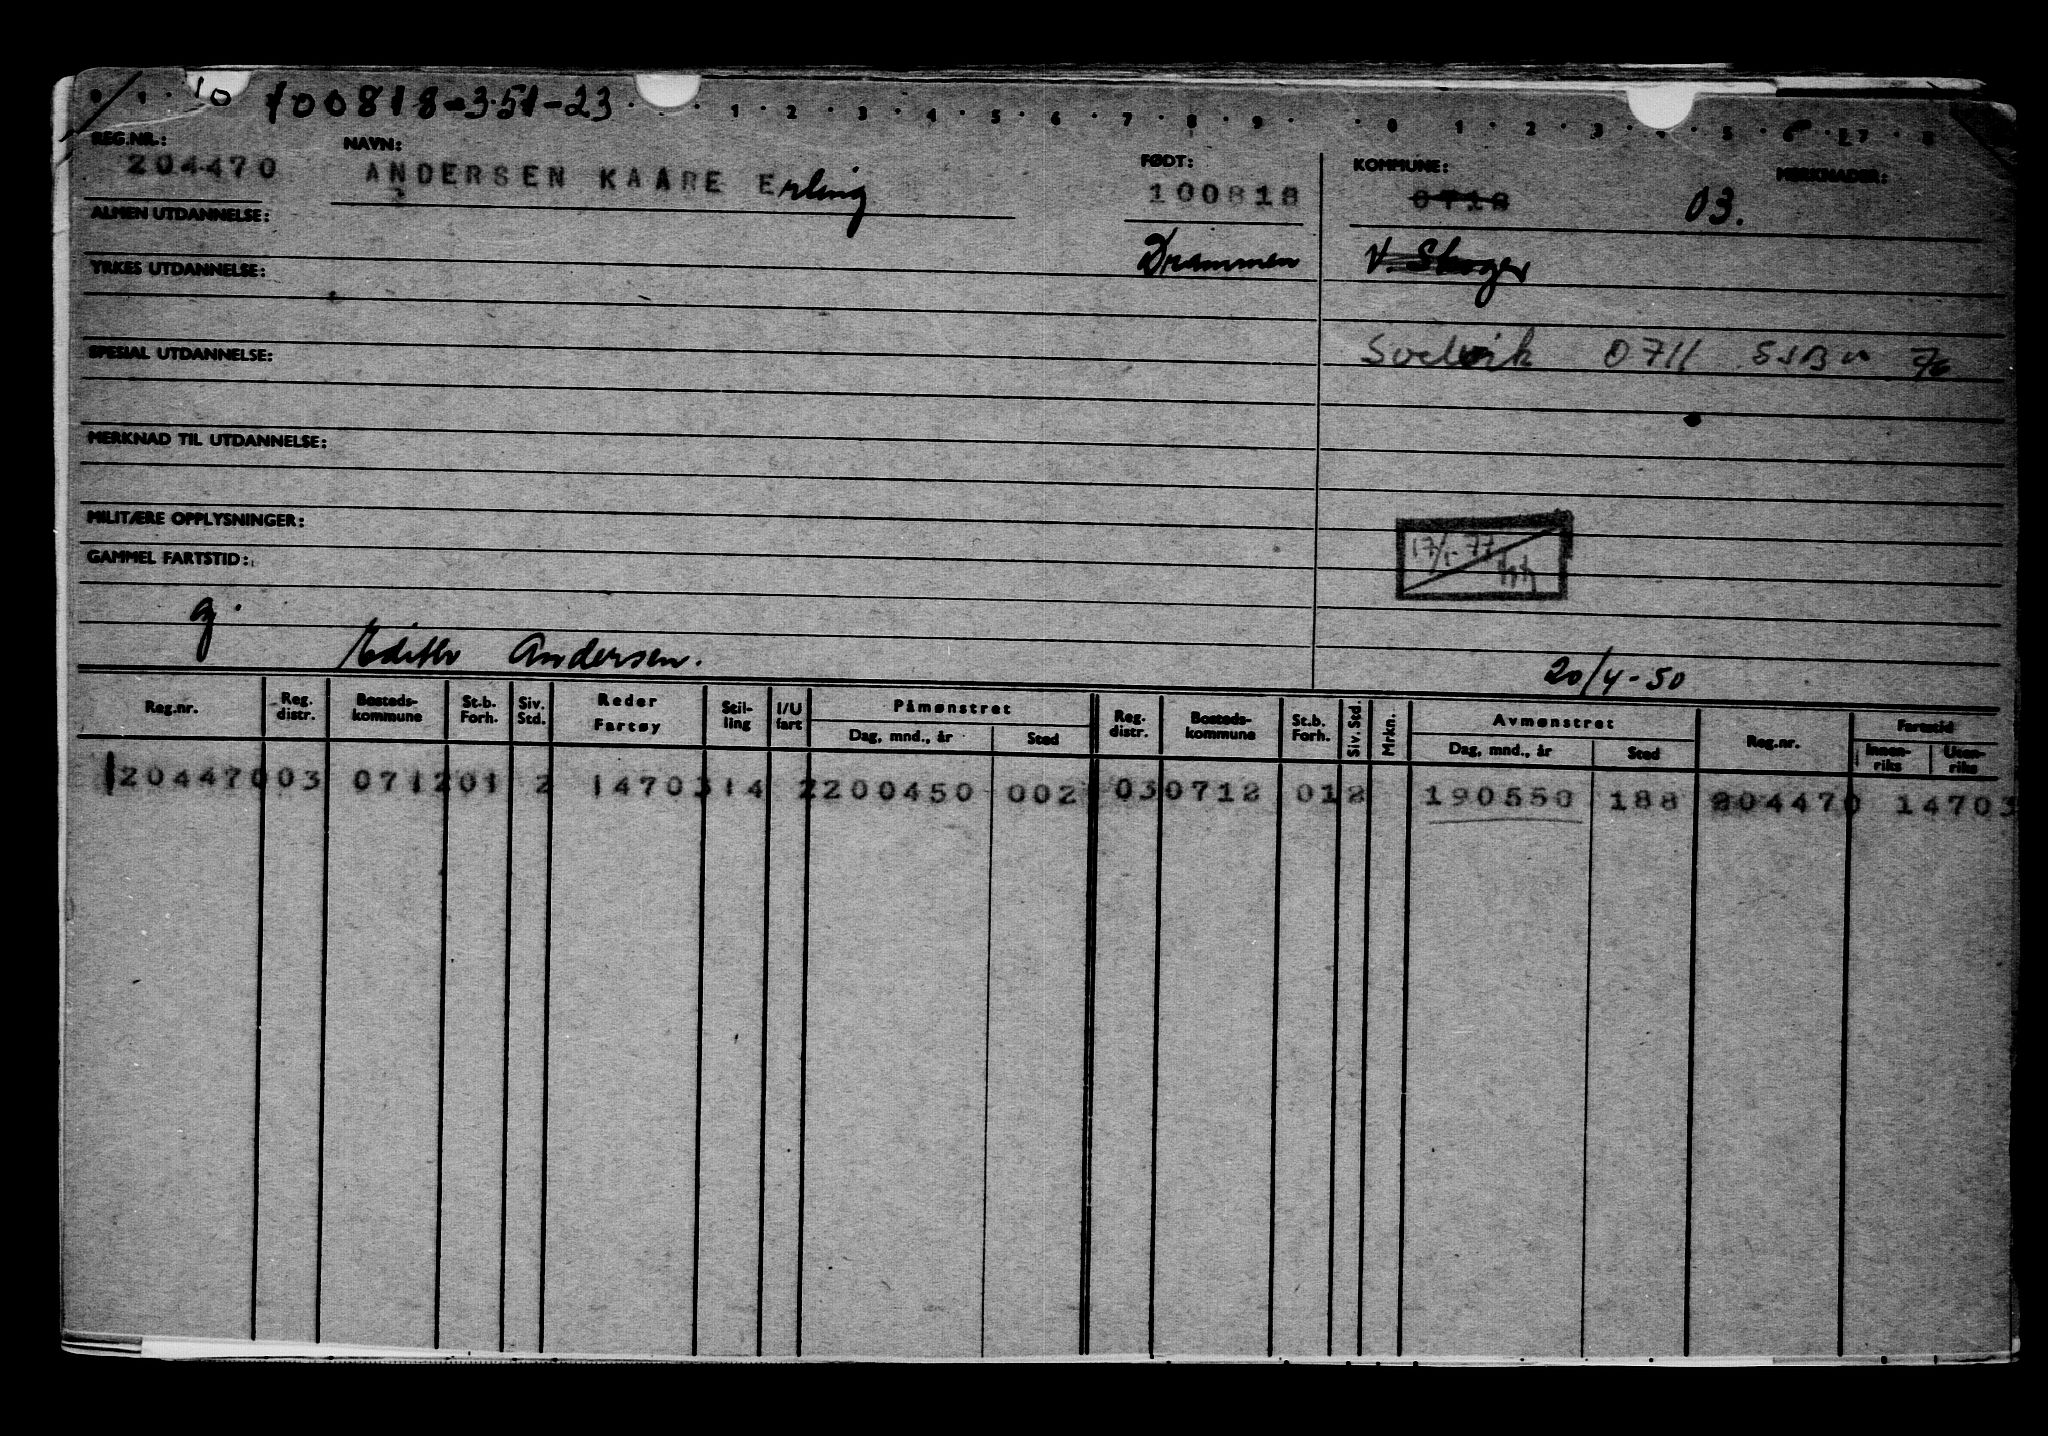 10 100818-351-23
0 1 1 2 3 4 5 6 7 8 9 0 1 2 3 4 5 6 7 8
REG.NR.: NAVN: FØDT: KOMMUNE: MERKNADER:
204470 ANDERSEN KAARE Erling 100818 0712 03.
ALMEN UTDANNELSE:
Drammen V. Skoger
YRKES UTDANNELSE:
SPESIAL UTDANNELSE: Svelvik 0711
MERKNAD TIL UTDANNELSE:
MILITÆRE OPPLYSNINGER:
17/1-77
GAMMEL FARTSTID:
g.
Edith Andersen. 20/4-50
Reg.nr. Reg. distr. Bosteds- kommune St.b. Forh. Siv. Std. Reder Fartøy Stil- ling I/U fart Påmønstret Dag, mnd., år Sted Reg. distr. Bosteds- kommune St.b. Forh. Siv. Std. Mrkn. Avmønstret Dag, mnd., år Sted Reg.nr. Fartstid Innen- riks Uten- riks
1204470 03 0712 01 2 14703 14 2 200450 002 03 0712 01 2 190550 188 204470 14703